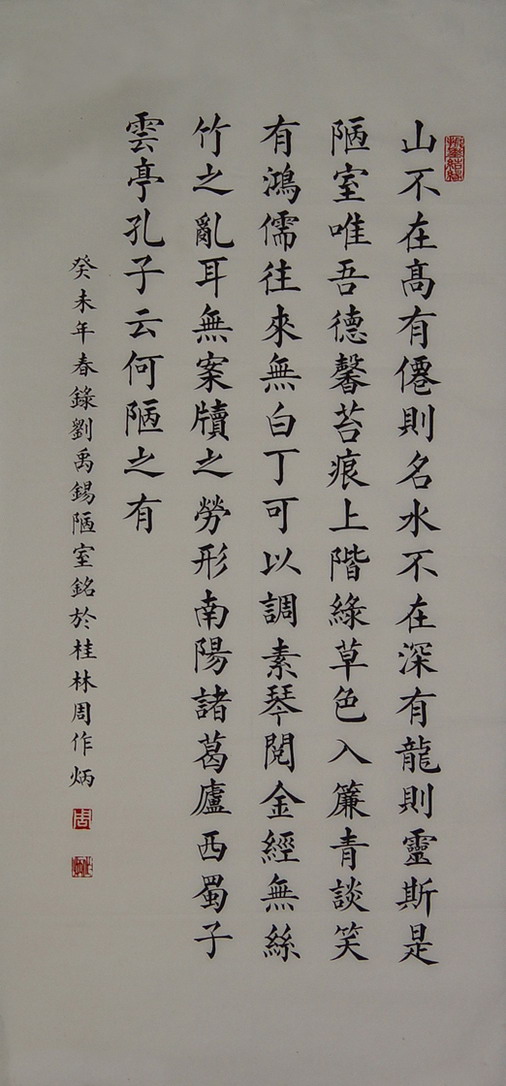 山不在髙有僊則名水不在深有龍則靈斯是
陋室唯吾德馨苔痕上階綠草色入簾青談笑
有鴻儒往來無白丁可以調素琴閱金經無絲
竹之亂耳無案牘之勞形南陽諸葛廬西蜀子
雲亭孔子云何陋之有
癸未年春錄劉禹錫陋室銘於桂林周作炳
周